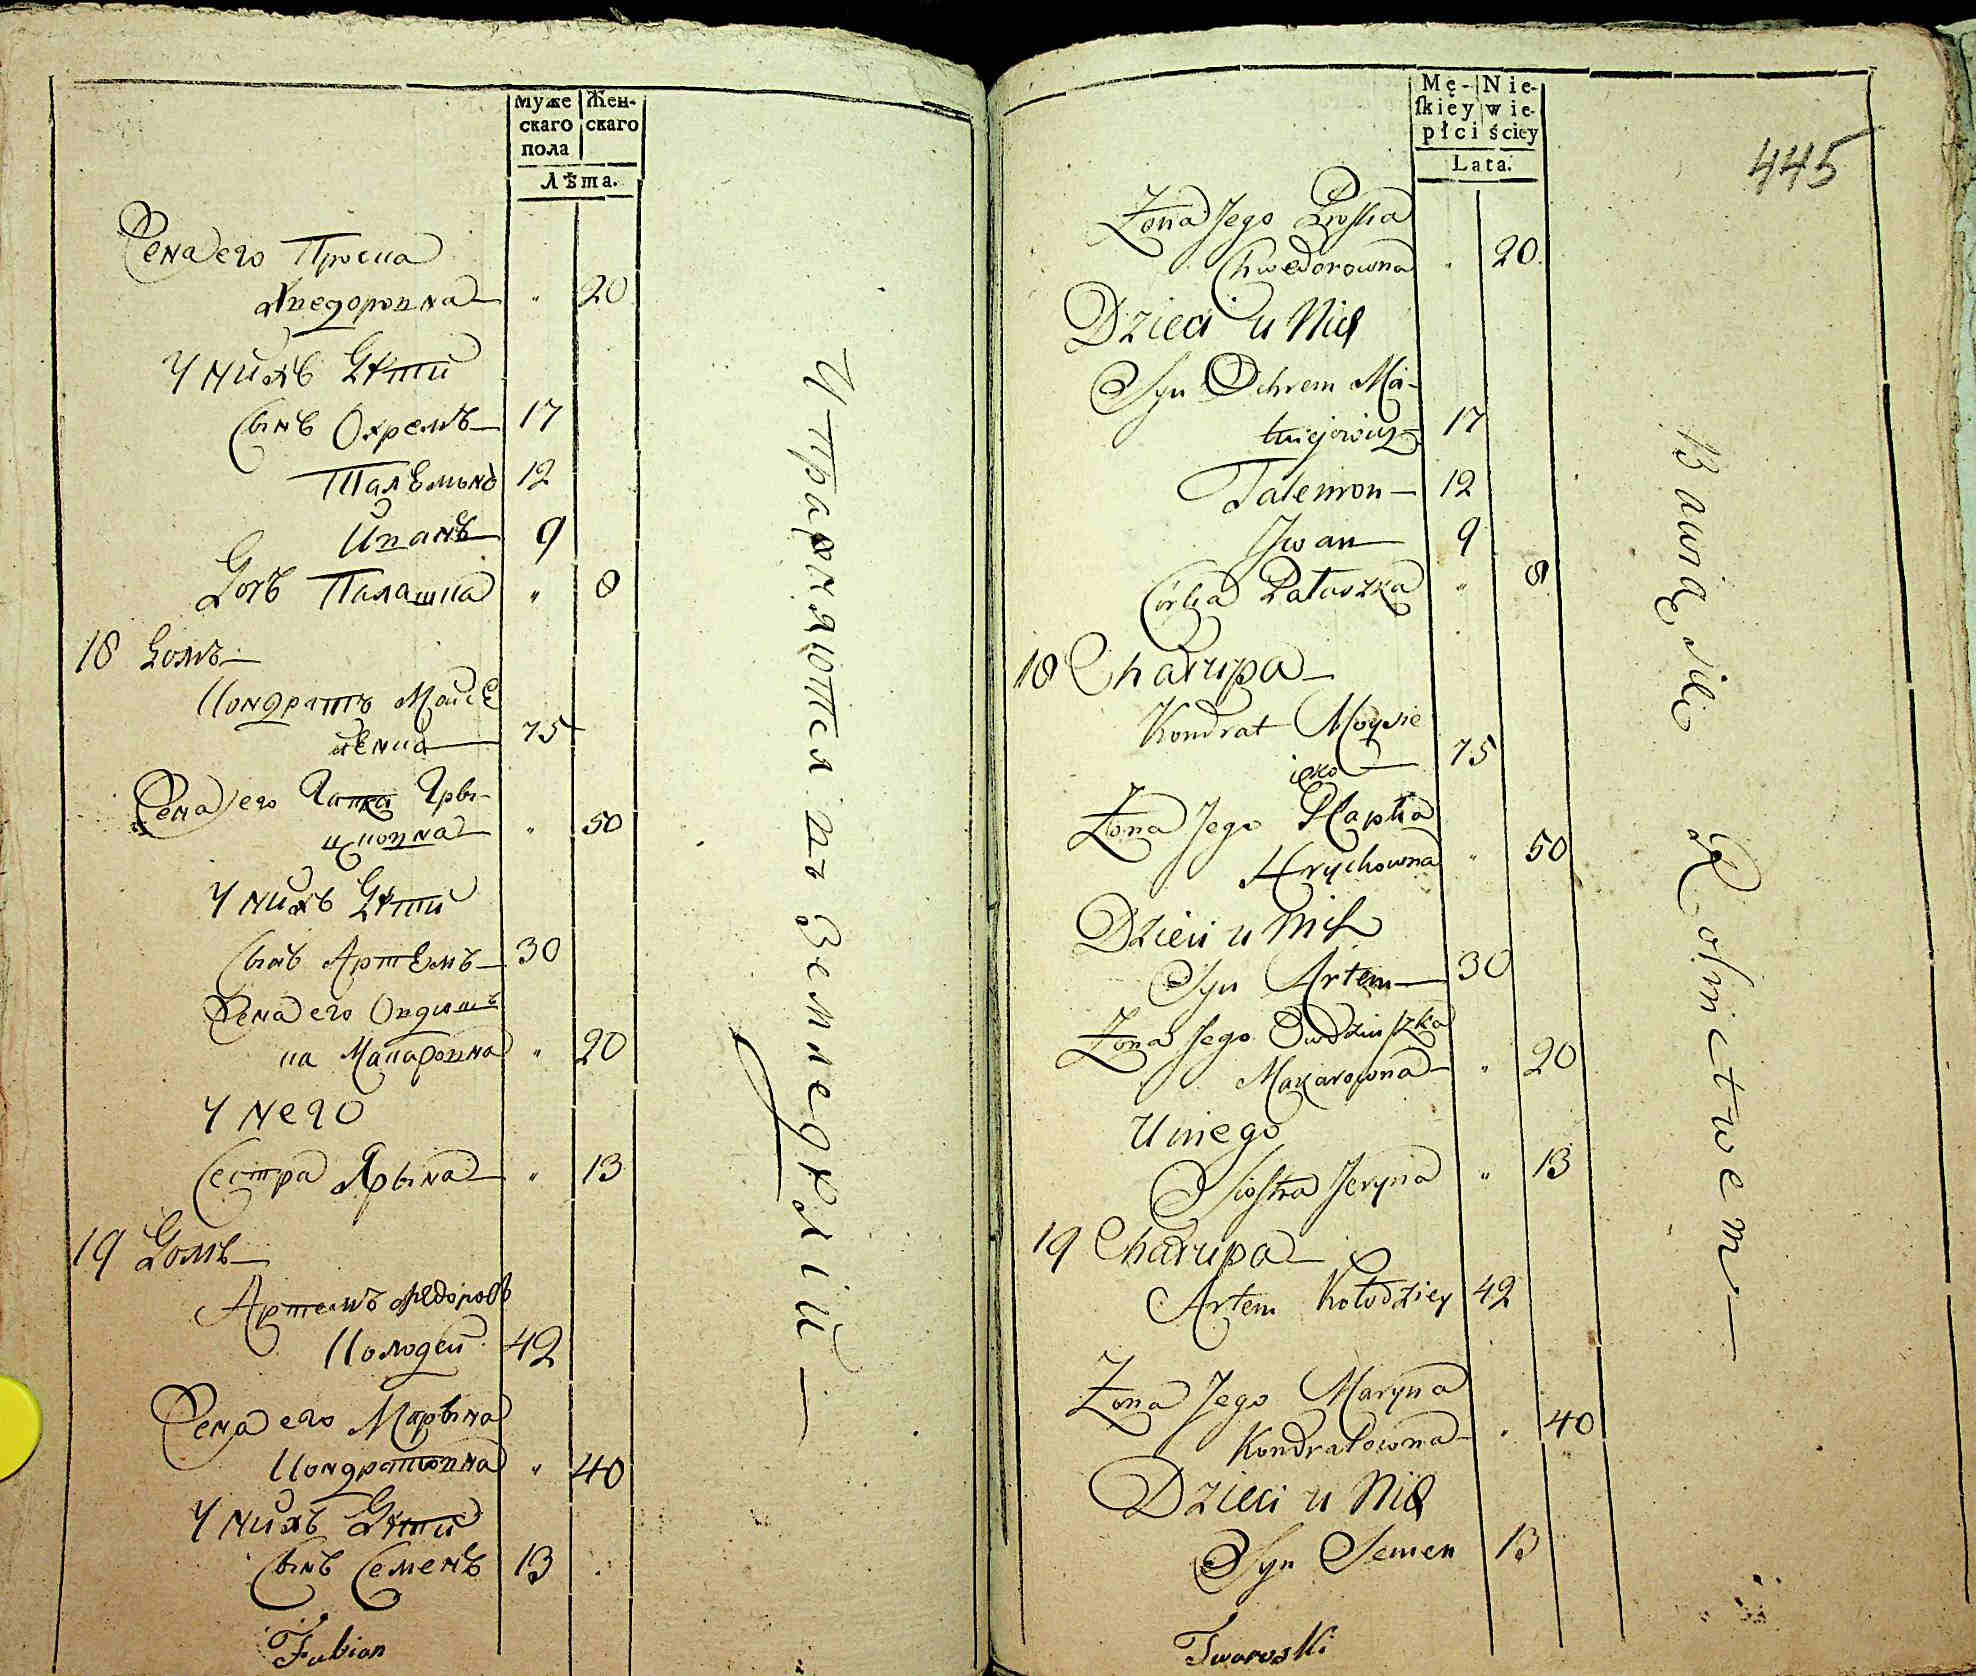 Муже Жен-
скаго скаго
пола
Лѣта.
Жена его Проска
Хведоровна " 20
У нихъ Дѣти
Сынъ Охремъ 17
Талѣмонъ 12
Иванъ 9
Дочь Палашка " 8
18 Домъ
Кондратъ Моисе
енка 75
Жена его Гапка Гры-
цковна " 50
У нихъ Дѣти
Сынъ Артемъ 30
Жена его Овдюш
ка Макаровна " 20
У него
Сестра Ярына " 13
19 Домъ
Артемъ Федоровъ
Колодей 42
Жена его Марына
Кондратовна " 40
У нихъ Дѣти
Сынъ Семенъ 13
Fabian
Упражняются въ Земледѣлiй
Mę- Nie-
skiey wie-
płci ściey
Lata.
445
Żona Jego Proska
Chwedorowna " 20
Dzieci u Nich
Syn Ochrem Ma-
twiejowicz 17
Talemon 12
Jwan 9
Córka Pałaszka " 8
18 Chałupa
Kondrat Moysie
ięko 75
Żona Jego Hapka
Hrychowna " 50
Dzieci u Nich
Syn Artem 30
Żona Jego Owdziuszka
Makarowna " 20
U niego
Siostra Jeryna " 13
19 Chałupa
Artem Kołodziey 42
Żona Jego Maryna
Kondratowna " 40
Dzieci u Nich
Syn Semen 13
Tworoski
Bawią się Rolnictwem